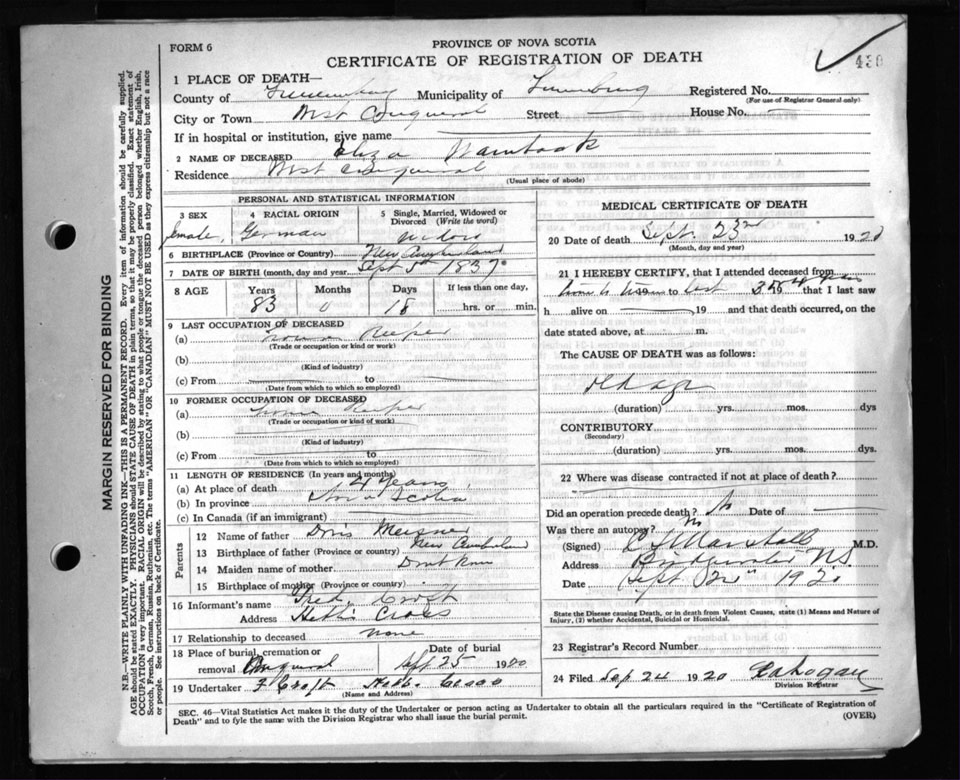 FORM 6
PROVINCE OF NOVA SCOTIA
CERTIFICATE OF REGISTRATION OF DEATH
430
1 PLACE OF DEATH—
County of Lunenburg Municipality of Lunenburg Registered No.
(For use of Registrar General only)
City or Town West Conquerall Street House No.
If in hospital or institution, give name
2 NAME OF DECEASED Eliza Wambook
Residence West
(Usual place of abode)
MARGIN RESERVED FOR BINDING
N.B.—WRITE PLAINLY WITH UNFADING INK—THIS IS A PERMANENT RECORD. Every item of information should be carefully supplied.
AGE should be stated EXACTLY. PHYSICIANS should STATE CAUSE OF DEATH in plain terms, so that it may be properly classified. Exact statement of
OCCUPATION is very important. RACIAL ORIGIN will be described by stating to what people or tongue the deceased person belonged whether English, Irish,
Scotch, French, German, Russian, Ruthenian, etc. The terms "AMERICAN" OR "CANADIAN" MUST NOT BE USED as they express citizenship but not a race
or people. See instructions on back of Certificate.
PERSONAL AND STATISTICAL INFORMATION
3 SEX
female
4 RACIAL ORIGIN
German
5 Single, Married, Widowed or
Divorced (Write the word)
widow
6 BIRTHPLACE (Province or Country) New
7 DATE OF BIRTH (month, day and year) Sept 5th 1837
8 AGE
Years
83
Months
0
Days
18
If less than one day,
hrs. or min.
9 LAST OCCUPATION OF DECEASED
(a) Keeper
(Trade or occupation or kind or work)
(b)
(Kind of industry)
(c) From to
(Date from which to which so employed)
10 FORMER OCCUPATION OF DECEASED
(a) Keeper
(Trade or occupation or kind of work)
(b)
(Kind of industry)
(c) From to
(Date from which to which so employed)
11 LENGTH OF RESIDENCE (In years and months)
(a) At place of death 4 years
(b) In province Nova Scotia
(c) In Canada (if an immigrant)
Parents
12 Name of father Meisner
13 Birthplace of father (Province or country) New
14 Maiden name of mother Dont Know
15 Birthplace of mother (Province or country)
16 Informant's name Fred Croft
Address Hebbs Cross
17 Relationship to deceased none
18 Place of burial, cremation or
removal Conquerall
Date of burial
Sept 25 1920
19 Undertaker F Croft Hebbs Cross
(Name and Address)
MEDICAL CERTIFICATE OF DEATH
20 Date of death Sept. 23rd 1920
(Month, day and year)
21 I HEREBY CERTIFY, that I attended deceased from
time to time last 3 or 4 19 that I last saw
h alive on , 19 and that death occurred, on the
date stated above, at m.
The CAUSE OF DEATH was as follows:
Old age
(duration) yrs. mos. dys
CONTRIBUTORY
(Secondary)
(duration) yrs. mos. dys
22 Where was disease contracted if not at place of death?
Did an operation precede death? No Date of
Was there an autopsy?
(Signed) Marshall M.D.
Address Bridgewater N.S.
Date Sept 1920
State the Disease causing Death, or in death from Violent Causes, state (1) Means and Nature of
Injury, (2) whether Accidental, Suicidal or Homicidal.
23 Registrar's Record Number
24 Filed Sep 24 1920
Division Registrar
SEC. 46—Vital Statistics Act makes it the duty of the Undertaker or person acting as Undertaker to obtain all the particulars required in the "Certificate of Registration of
Death" and to fyle the same with the Division Registrar who shall issue the burial permit.
(OVER)